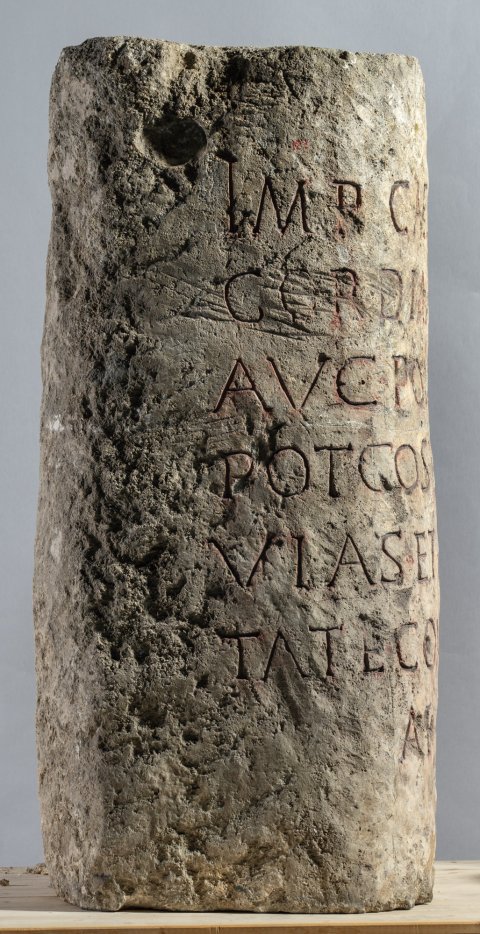 IMP CAE
GORDIA
AVG PO
POT COS
VIAS ET
TATE CO
A